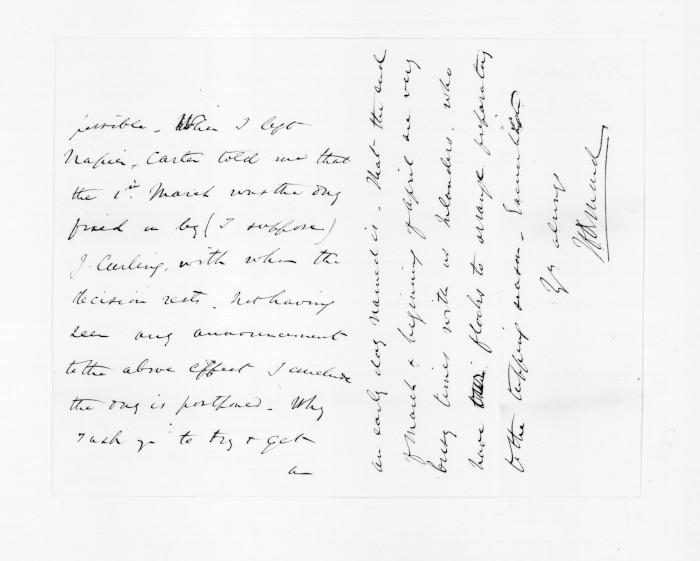 possible. When I left
Napier, Carter told me that
the 1st March was the day
fixed on by (I suppose)
J. Curling, with whom the
decision rests. Not having
seen any announcement
to the above effect I conclude
the day is postponed. Why
I ask you to try & get
a
an early day named is. That the end
of March & beginning of April are very
busy times with us Inlanders, who
have their flocks to arrange preparatory
to the tupping season.
Yrs always